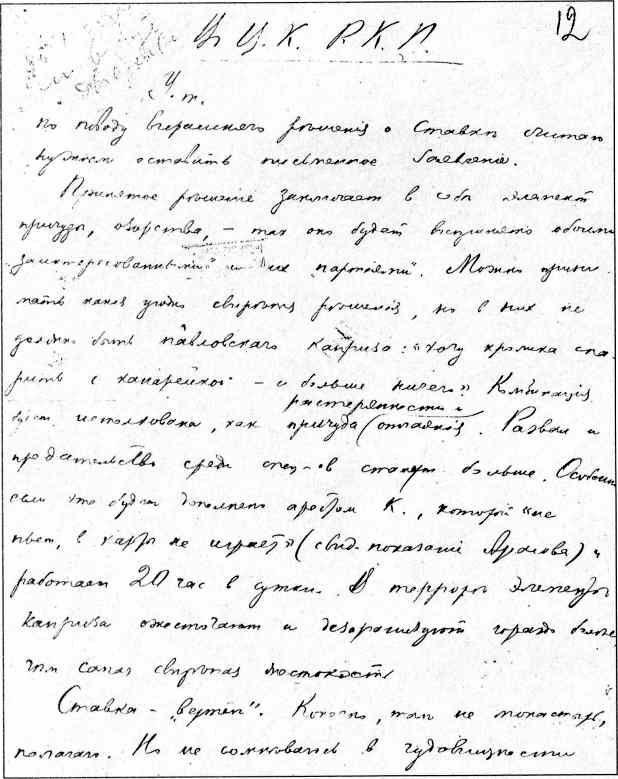 12
В Ц. К. Р. К. П.
У. т.
По поводу вчерашнего рѣшенія о Ставкѣ считаю
нужным оставить письменное заявленіе.
Принятое рѣшеніе заключает в себѣ элемент
причуды, озорства, – так оно будет воспринято обоими
заинтересованными" и их партіями". Можно прини
мать какія угодно свирѣпыя рѣшенія, но в них не
должно быть павловскаго каприза: "хочу кролика спа
рить с канарейкой – и больше ничего". Комбинація
будет истолкована, как причуда (отчаянія
растерянности и
. Развал и
предательство среди спец-ов станут больше. Особенно
если это будет дополнено арестом К., который "не
пьет, в карты не играет" (свид. показаніе) и
работает 20 час в сутки. В террорѣ элементы
каприза ожесточают и дезорганизуют гораздо больше
чѣм самая свирѣпая жестокость
Ставка – "вертеп". Конечно, там не монастырь,
полагаю. Но не сомнѣваюсь в чудовищности